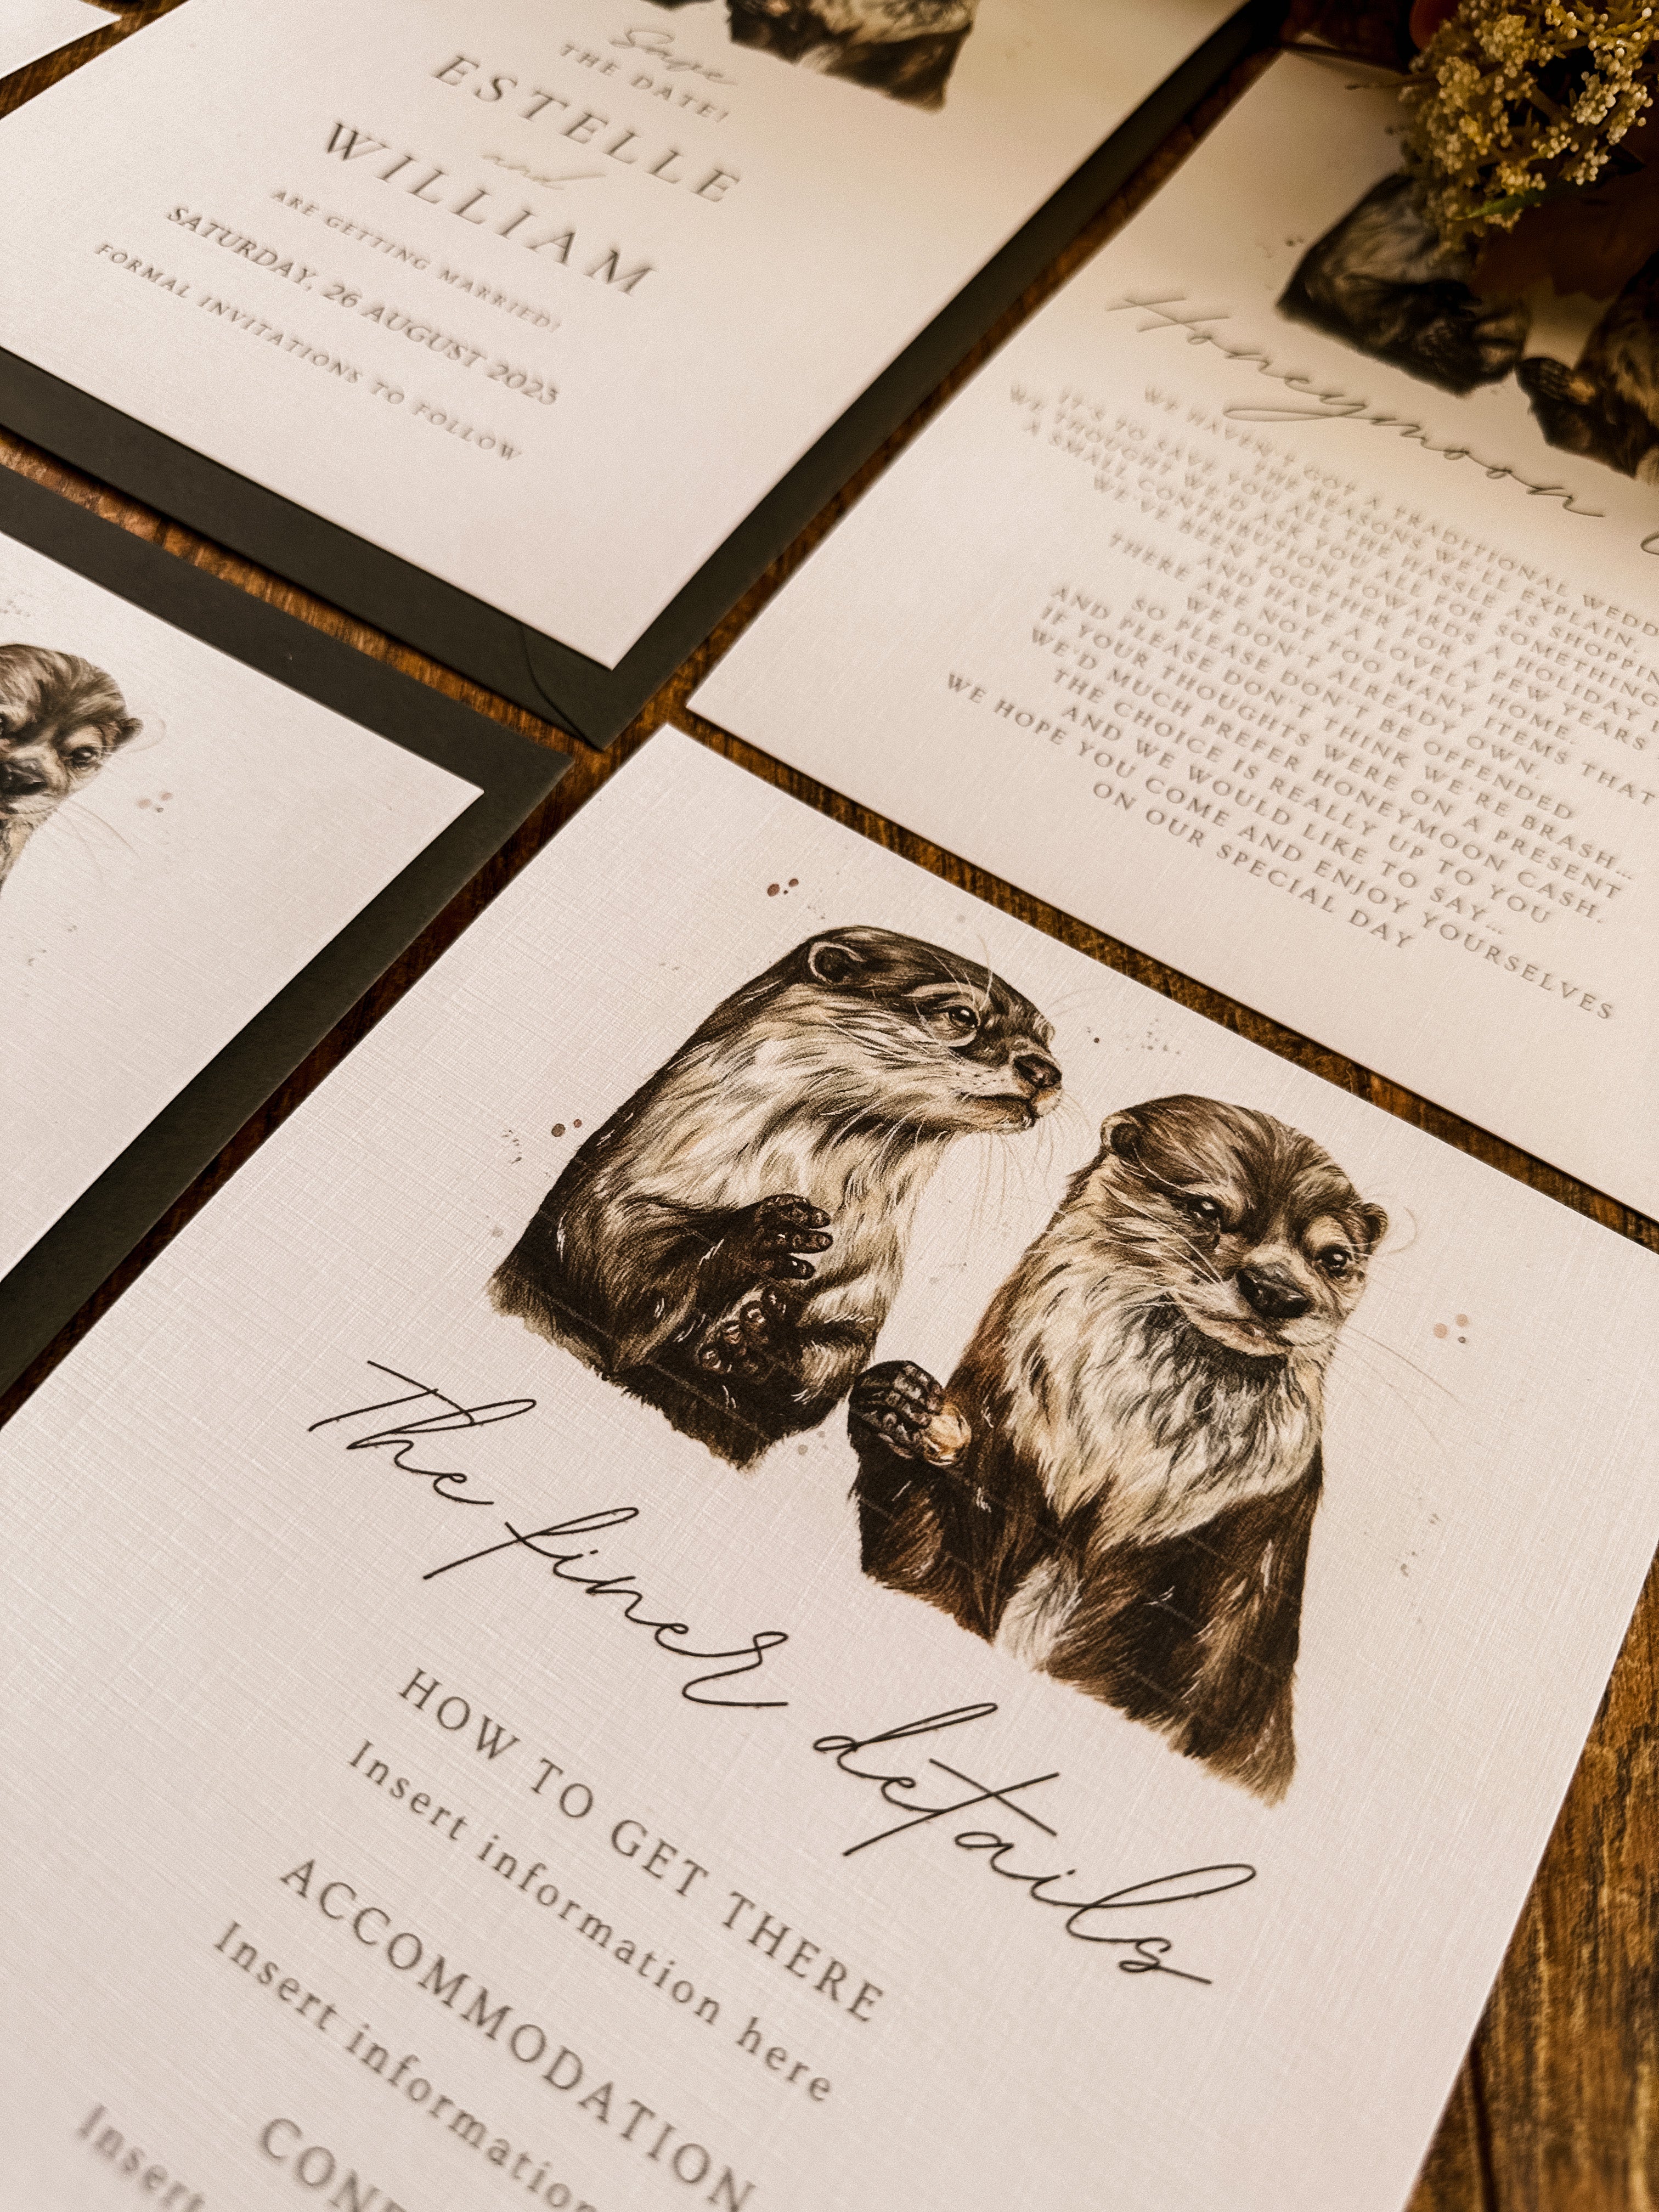 Save
THE DATE!
ESTELLE
and
WILLIAM
ARE GETTING MARRIED!
SATURDAY, 26 AUGUST 2023
FORMAL INVITATIONS TO FOLLOW
Honeymoon
WE HAVEN'T GOT A TRADITIONAL
THE REASONS WE'LL EXPLAIN,
IT'S TO SAVE YOU ALL THE HASSLE AS
WE THOUGHT WE'D ASK YOU ALL FOR SOMETHING
A SMALL CONTRIBUTION TOWARDS A HOLIDAY
WE'VE BEEN TOGETHER FOR A FEW YEARS
AND HAVE A LOVELY HOME.
THERE ARE NOT TOO MANY ITEMS THAT
WE DON'T ALREADY OWN.
SO PLEASE DON'T BE OFFENDED
AND PLEASE DON'T THINK WE'RE BRASH...
IF YOUR THOUGHTS WERE ON A PRESENT
WE'D MUCH PREFER HONEYMOON CASH.
THE CHOICE IS REALLY UP TO YOU
AND WE WOULD LIKE TO SAY...
WE HOPE YOU COME AND ENJOY YOURSELVES
ON OUR SPECIAL DAY
The finer details
HOW TO GET THERE
Insert information here
ACCOMMODATION
Insert information
Insert